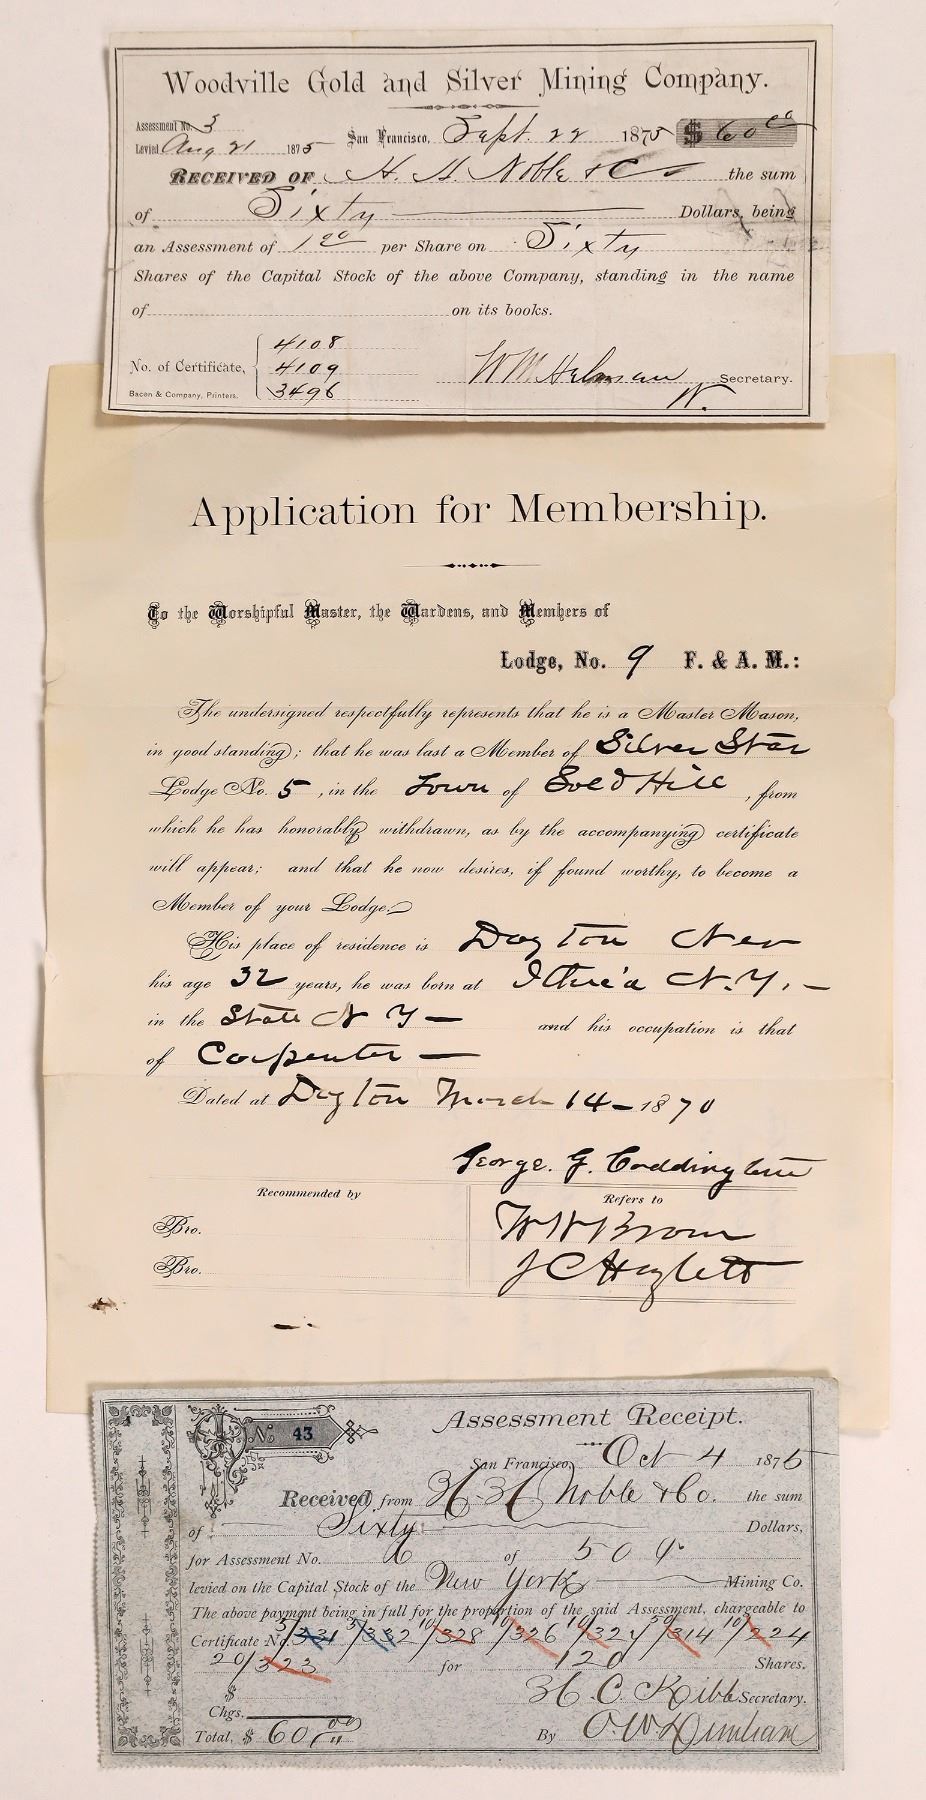 Woodville Gold and Silver Mining Company.
Assessment No. 3
Levied Aug 21 1875 San Francisco, Sept. 22 1875 $ 60 00
RECEIVED OF H. H. Noble & Co the sum
of Sixty Dollars, being
an Assessment of 1 00 per Share on Sixty
Shares of the Capital Stock of the above Company, standing in the name
of on its books.
No. of Certificate, 4108
4109
3496
W M Helman Secretary.
W.
Bacon & Company, Printers.
Application for Membership.
To the Worshipful Master, the Wardens, and Members of
Lodge, No. 9 F. & A. M.:
The undersigned respectfully represents that he is a Master Mason,
in good standing; that he was last a Member of Silver Star
Lodge No. 5, in the Town of Gold Hill, from
which he has honorably withdrawn, as by the accompanying certificate
will appear; and that he now desires, if found worthy, to become a
Member of your Lodge.
His place of residence is Dayton Nev
his age 32 years, he was born at N.Y. —
in the State N Y — and his occupation is that
of Carpenter —
Dated at Dayton March 14 - 1870
George. G. Coddington
Recommended by Refers to
Bro. W W Brown
Bro. J C Hazlett
No. 43 Assessment Receipt.
San Francisco, Oct 4 1875
Received from H. H. Noble & Co. the sum
of Sixty Dollars,
for Assessment No. 6 of 50 c.
levied on the Capital Stock of the New York Mining Co.
The above payment being in full for the proportion of the said Assessment, chargeable to
Certificate No. 5/331 5/332 10/328 10/326 10/322 50/314 10/224
20/323 for 120 Shares.
$
H. C. Kibbe Secretary.
Chgs.
Total, $ 60 00 By O. W.